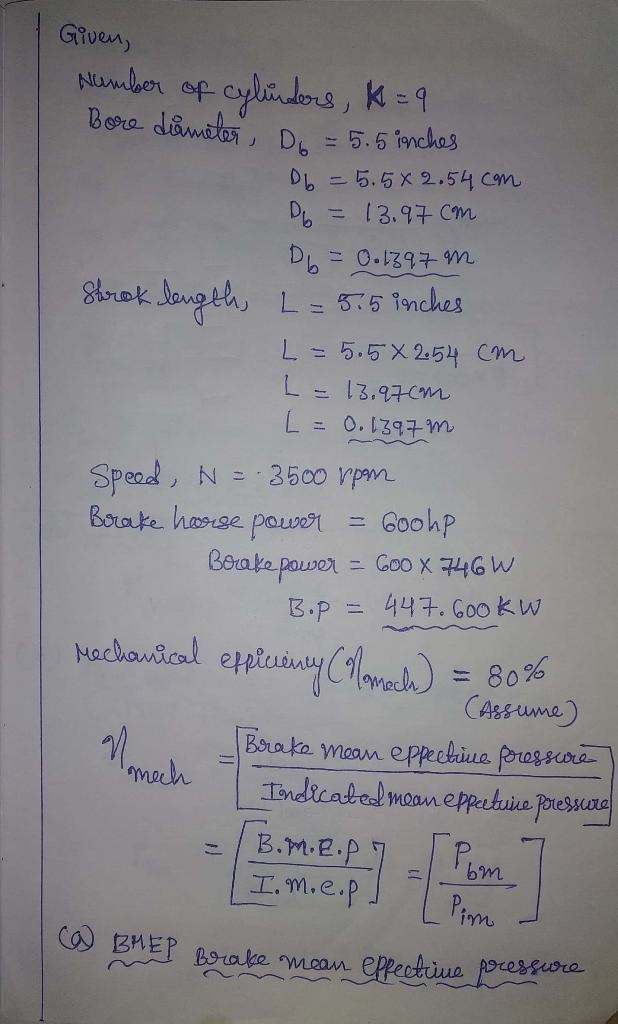 Given,
Number of cylinders, K = 9
Bore diameter, D_b = 5.5 inches
D_b = 5.5 x 2.54 cm
D_b = 13.97 cm
D_b = 0.1397 m
Strok length, L = 5.5 inches
L = 5.5 x 2.54 cm
L = 13.97cm
L = 0.1397 m
Speed, N = 3500 rpm
Brake horse power = 600hp
Brake power = 600 x 746 W
B.P = 447.600 KW
Mechanical efficiency (η_mech) = 80%
(Assume)
η_mech = [Brake mean effective pressure / Indicated mean effective pressure]
= [B.M.E.P / I.m.e.p] = [P_bm / P_im]
(a) BMEP Brake mean effective pressure